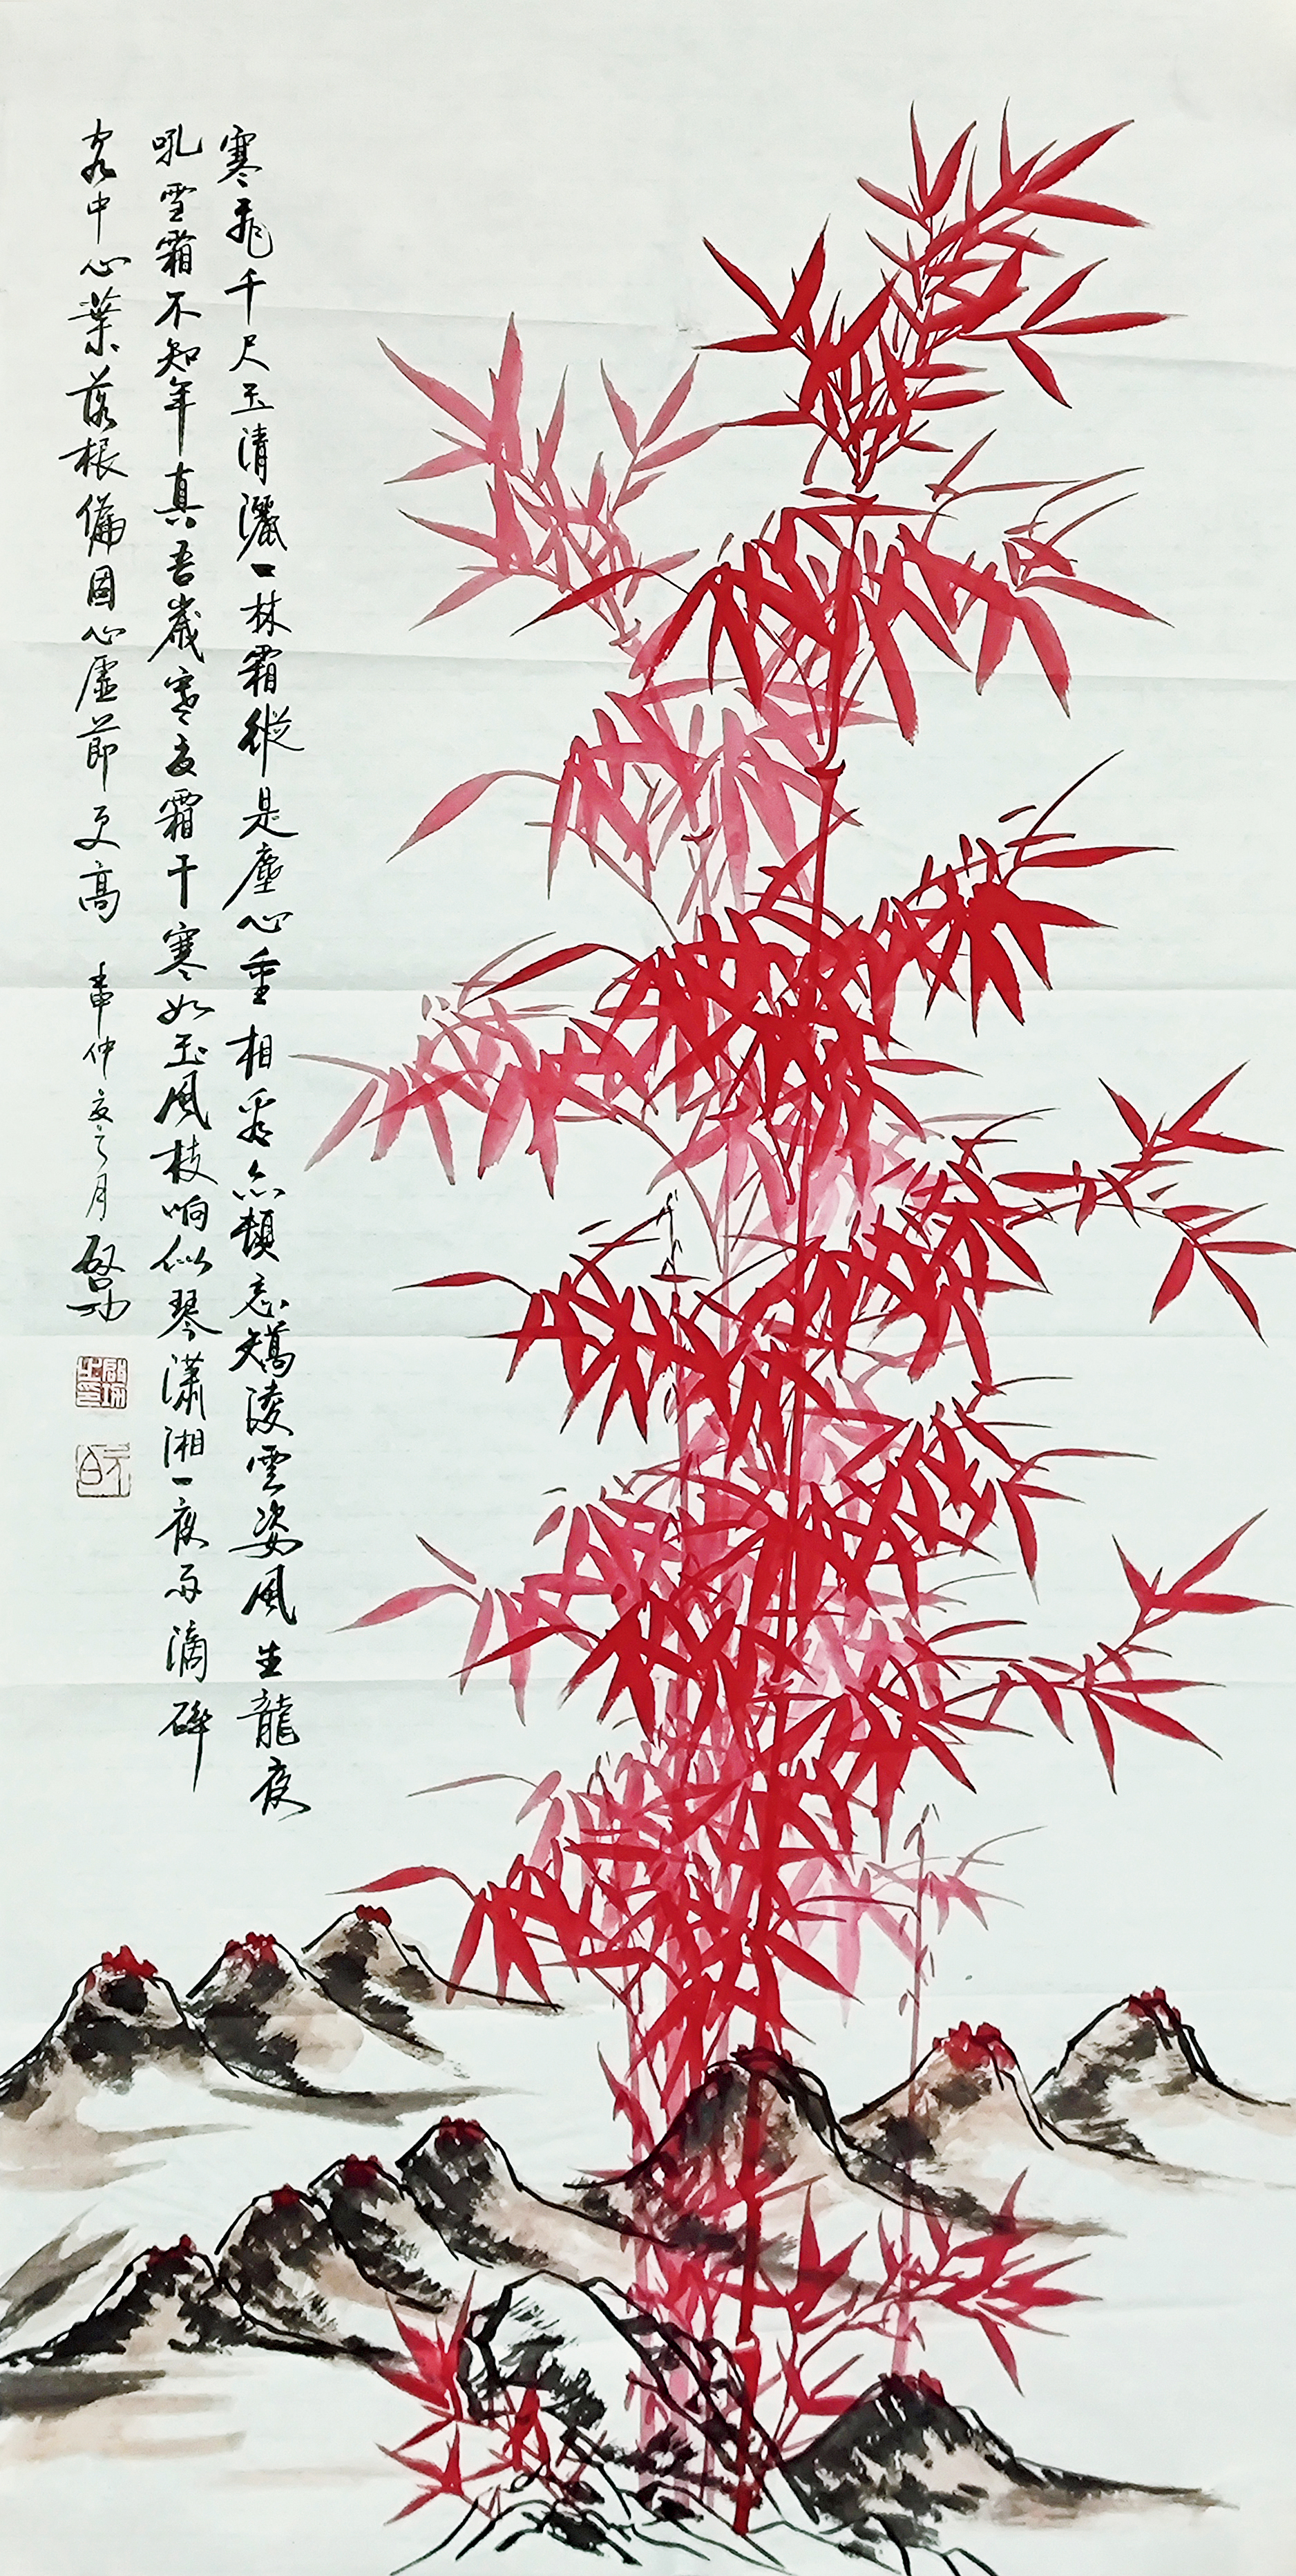 寒飛千尺玉清灑一林霜縱是塵心重相看亦頓忘矯淩雲姿風生龍夜
吼雪霜不知年真吾歲寒友霜干寒如玉風枝响似琴瀟湘一夜雨滴碎
客中心葉落根偏固心虛節更高 仲夏之月 啟功
啟功之印
元白